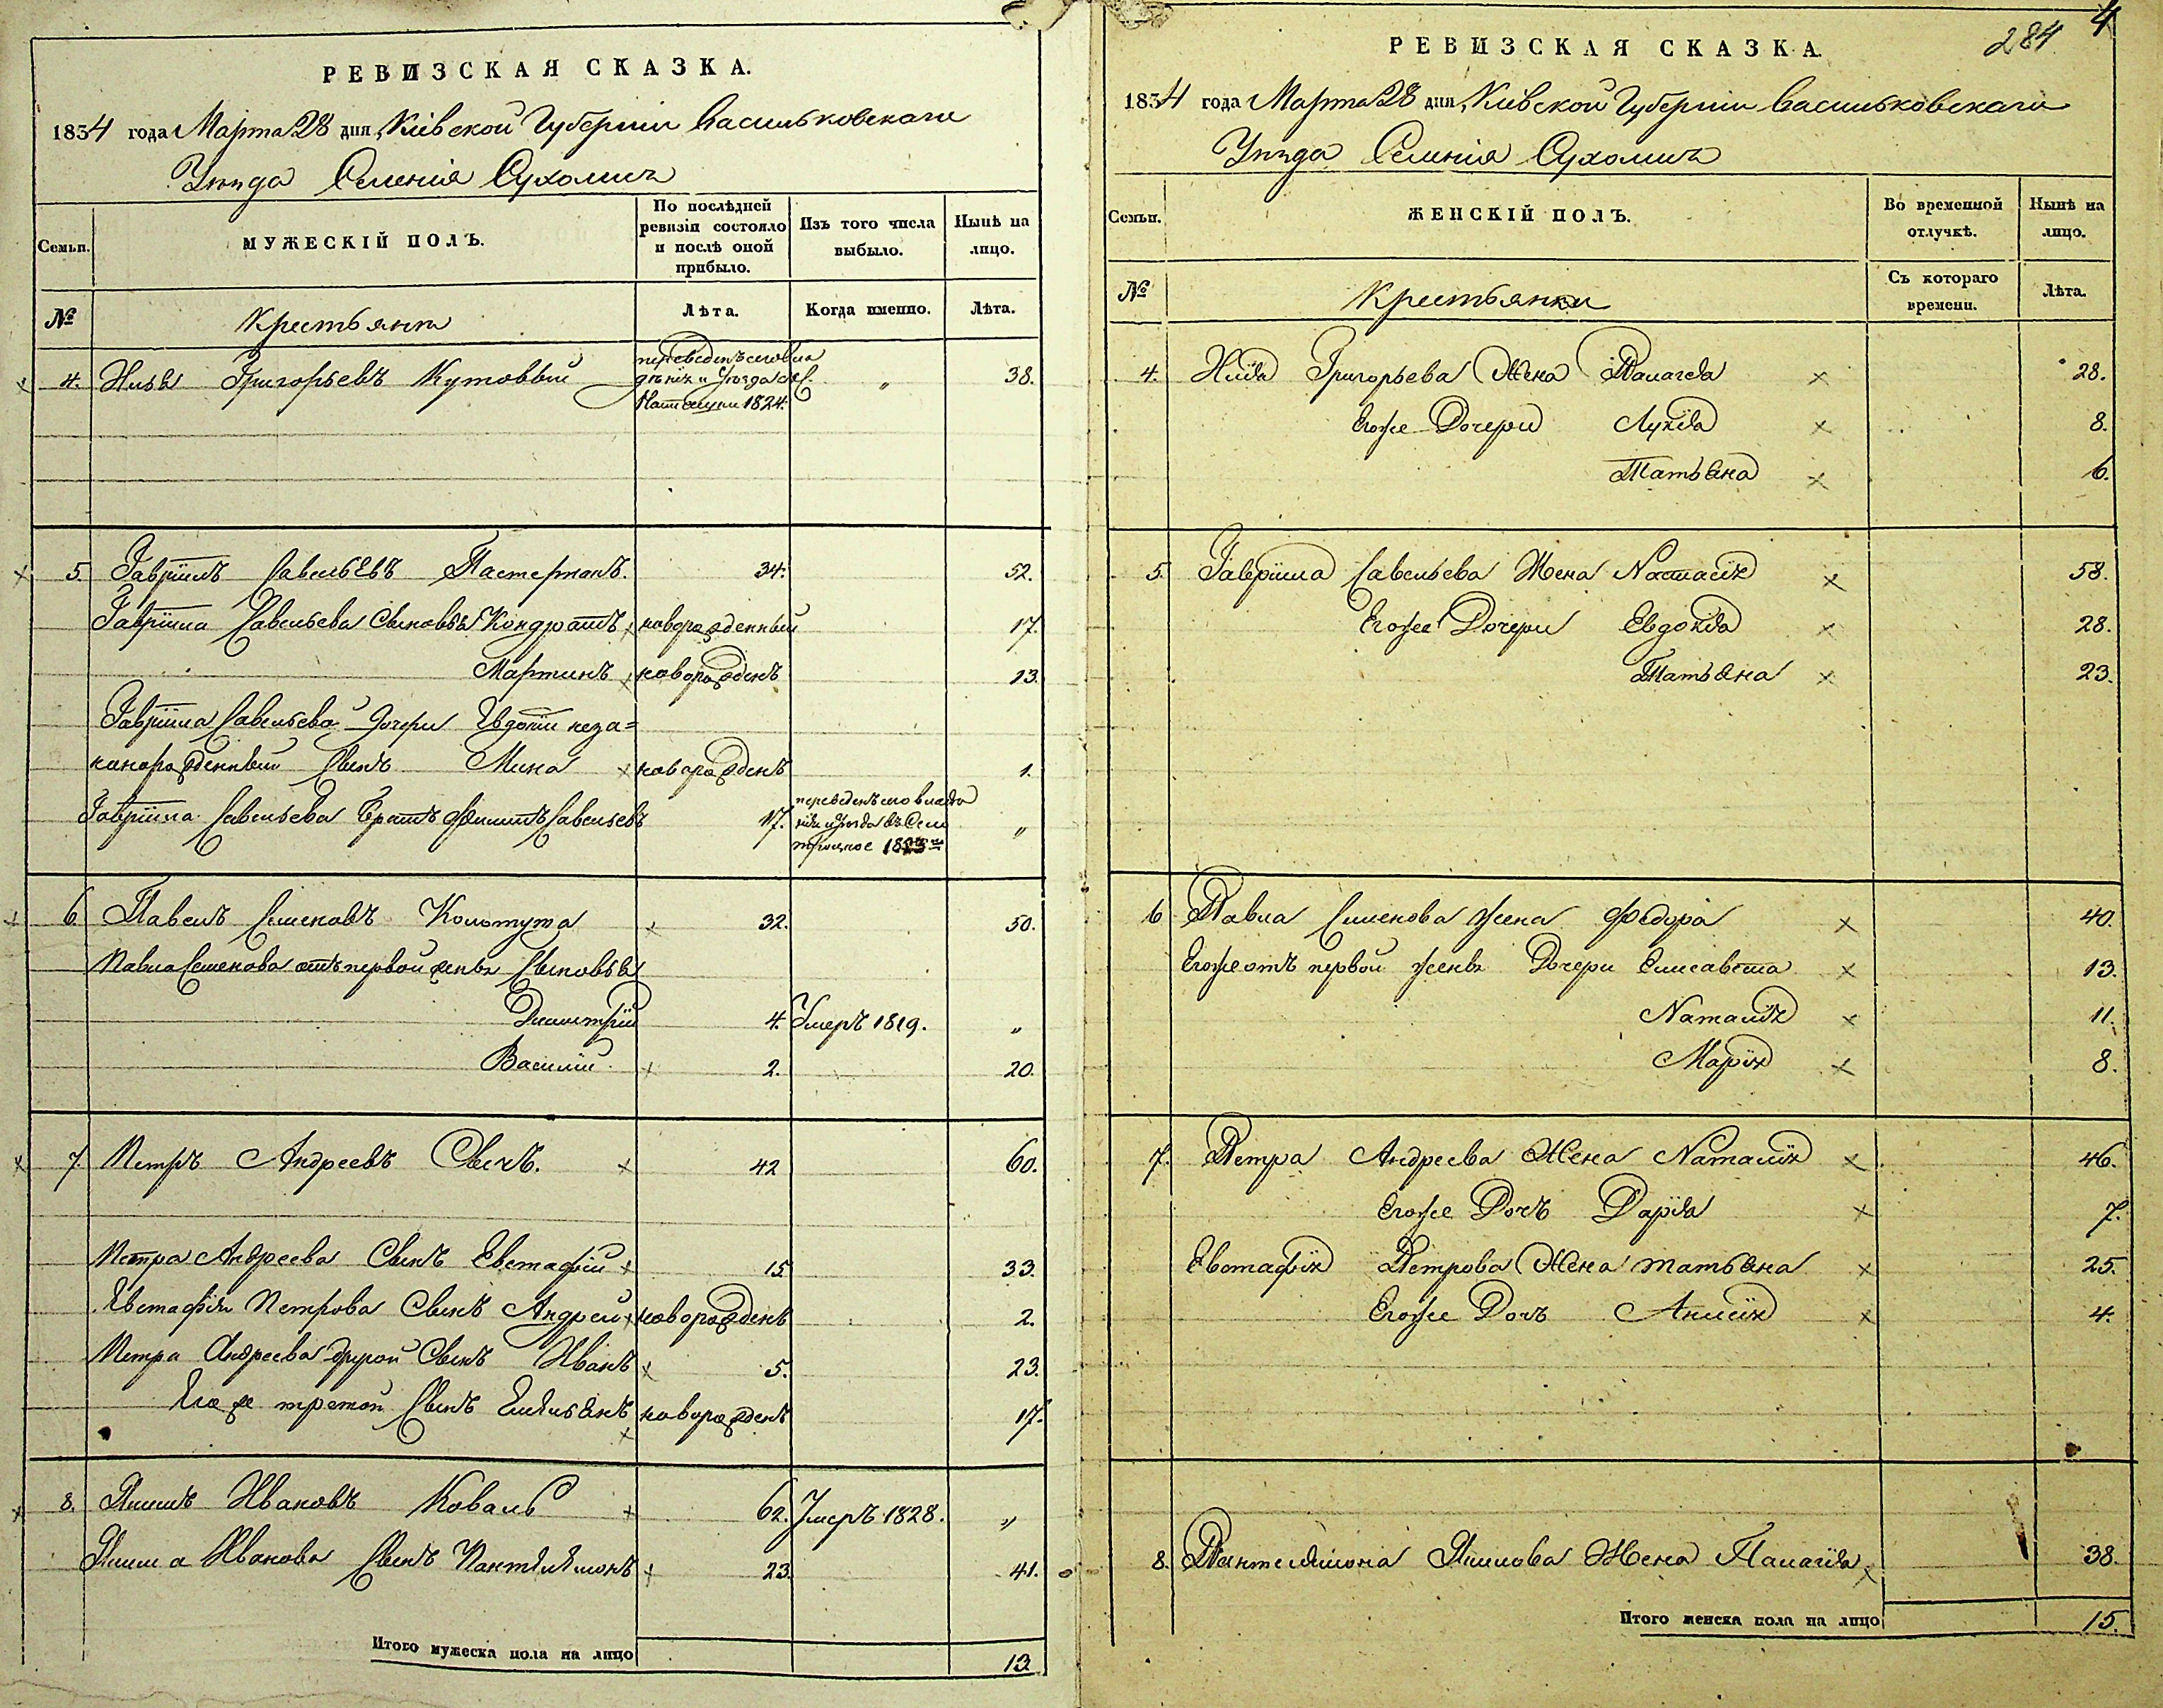 РЕВИЗСКАЯ СКАЗКА.
1834 года Марта 28 дня, Кіевской Губерніи Васильковскаго
Уѣзда Селенія Сухолисъ
Семьи.
МУЖЕСКІЙ ПОЛЪ.
По послѣдней ревизіи состояло и послѣ оной прибыло.
Изъ того числа выбыло.
Нынѣ на лицо.
№
Крестьяни
Лѣта.
Когда именно.
Лѣта.
4. Илья Григорьевъ Кутовый переведенъ сего владенія и уѣзда с 1824. „ 38.
5. Гавріилъ Савельевъ Пастернакъ. 34. 52.
Гавріила Савельева Сыновья Кондратъ новорожденный 17.
Мартинъ новорожденъ 13.
Гавріила Савельева Дочери Евдокіи неза=
конорожденный Сынъ Мина новорожденъ 1.
Гавріила Савельева Братъ Филипъ Савельевъ 17. переведенъ сего владенія и уѣзда въ Село Троцкое „
6. Павелъ Семеновъ Колотута 32. 50.
Павла Семенова отъ первой жены Сыновья
Димитрій 4. Умеръ 1819. „
Василій 2. 20.
7. Петръ Андреевъ Свечъ. 42 60.
Петра Андреева Сынъ Евстафій 15 33.
Евстафія Петрова Сынъ Андрей новорожденъ 2.
Петра Андреева другой Сынъ Иванъ 5. 23.
Его же третой Сынъ Емельянъ новорожденъ 17.
8. Яковъ Ивановъ Коваль 62. Умеръ 1828. „
Ивановa Сынъ Пантелимонъ 23. 41.
Итого мужеска пола на лицо 13
284 4
РЕВИЗСКАЯ СКАЗКА.
1834 года Марта 28 дня, Кіевской Губерніи Васильковскаго
Уѣзда Селенія Сухолисъ
Семьи.
ЖЕНСКІЙ ПОЛЪ.
Во временной отлучкѣ.
Нынѣ на лицо.
№
Крестьянки
Съ котораго времени.
Лѣта.
4. Илія Григорьева Жена Палагея 28.
Егоже Дочери Лукія 8.
Татьяна 6.
5. Гавріила Савельева Жена Настасія 58.
Егоже Дочери Евдокія 28.
Татьяна 23.
6 Павла Семенова жена Федора 40.
Егоже отъ первой жены Дочери Елисавета 13.
Наталія 11.
Марія 8.
7. Петра Андреева Жена Наталія 46.
Егоже Дочь Дарія 7.
Евстафія Петрова Жена татьяна 25.
Егоже Дочь Анисія 4.
8. Пантелимона Жена Палагія 38.
Итого женска пола на лицо 15.